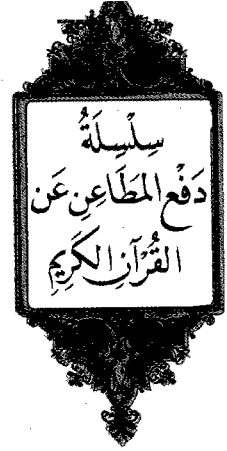 سِلْسِلَةُ
دَفْعِ المَطَاعِنِ عَن
القُرْآنِ الكَرِيمِ